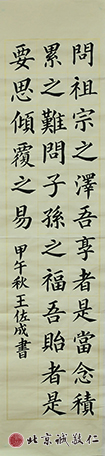 問祖宗之澤吾享者是當念積
累之難問子孫之福吾貽者是
要思傾覆之易
甲午秋王佐成書
北京誠敬仁